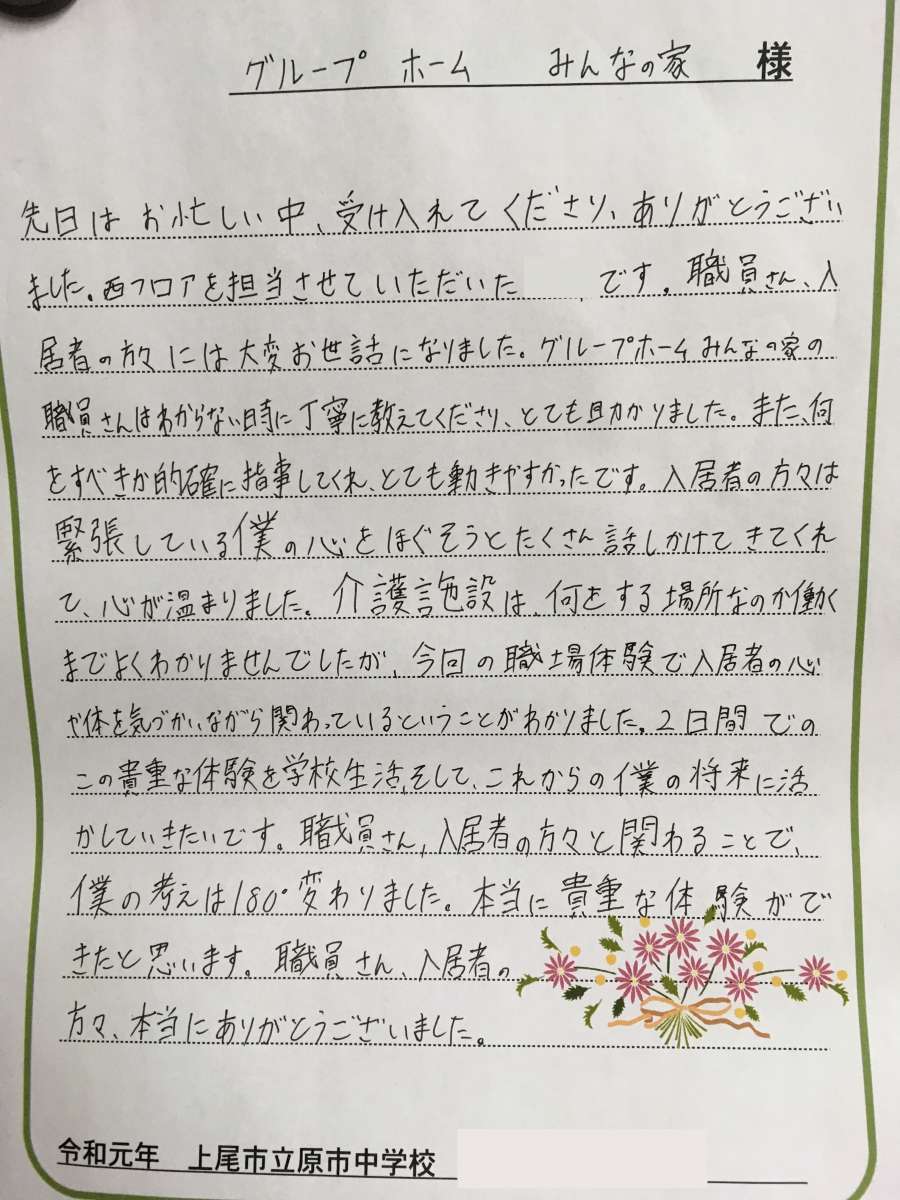 グループ ホーム みんなの家 様
先日は お忙しい中、受け入れてくださり、ありがとうござい
ました。西フロアを担当させていただいた です。職員さん、入
居者の方々には大変お世話になりました。グループホームみんなの家の
職員さんはわからない時に丁寧に教えてくださり、とても助かりました。また、何
をすべきか的確に指事してくれ、とても動きやすかったです。入居者の方々は
緊張している僕の心をほぐそうとたくさん話しかけてきてくれ
て、心が温まりました。介護施設は、何をする場所なのか働く
までよくわかりませんでしたが、今回の職場体験で入居者の心
や体を気づかいながら関わっているということがわかりました。2日間での
この貴重な体験を学校生活、そして、これからの僕の将来に活
かしていきたいです。職員さん、入居者の方々と関わることで、
僕の考えは180°変わりました。本当に貴重な体験がで
きたと思います。職員さん、入居者の
方々、本当にありがとうございました。
令和元年 上尾市立原市中学校